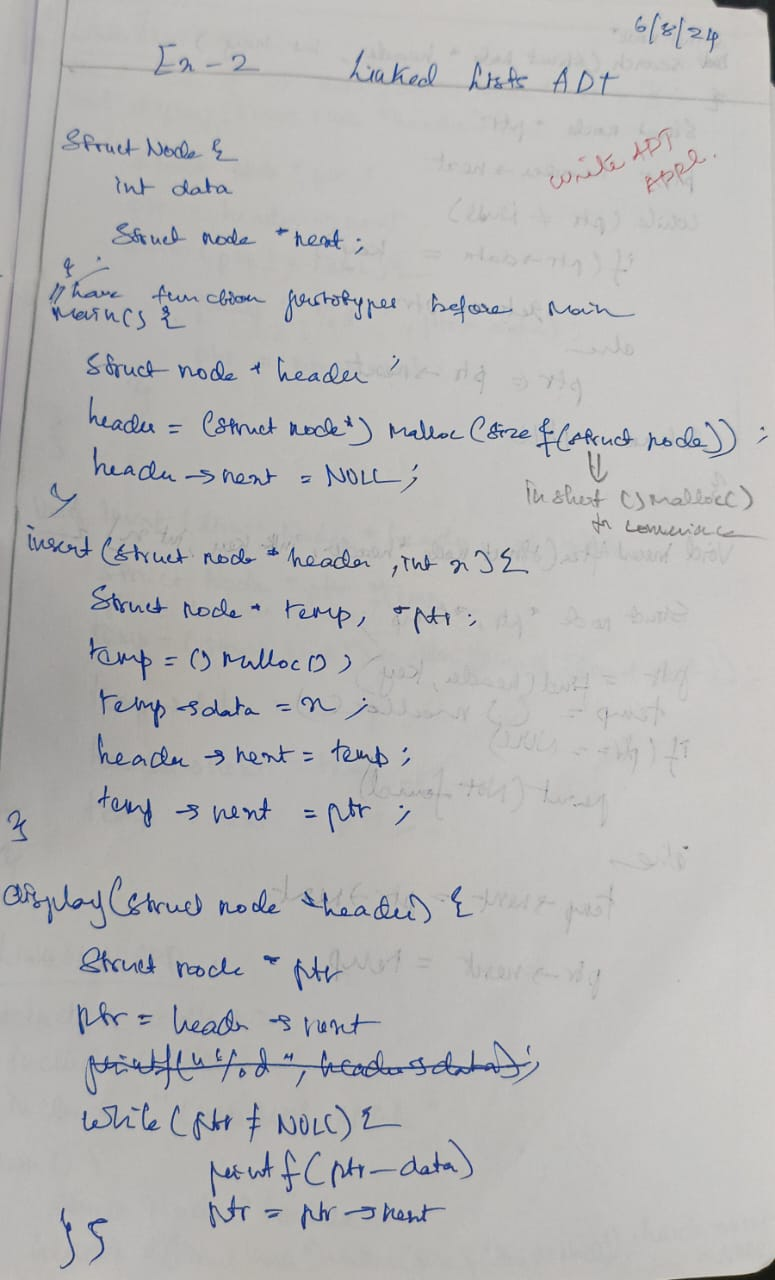 6/8/24
Ex-2 Linked Lists ADT
write ADT
APPL.
Struct Node {
int data
Struct node *next;
};
// have function prototypes before Main
Main() {
Struct node * header ;
header = (struct node*) Malloc (size of (struct node)) ;
header → next = NULL ;
In short () Malloc()
}
insert (struct node * header , int x) {
Struct node * temp, *ptr ;
temp = () Malloc() ;
temp → data = x ;
header → next = temp ;
temp → next = ptr ;
}
display (struct node *header) {
Struct node * ptr
ptr = header → next
printf("%d", header → data) ;
while (ptr ≠ NULL) {
printf (ptr – data)
ptr = ptr → next
} }